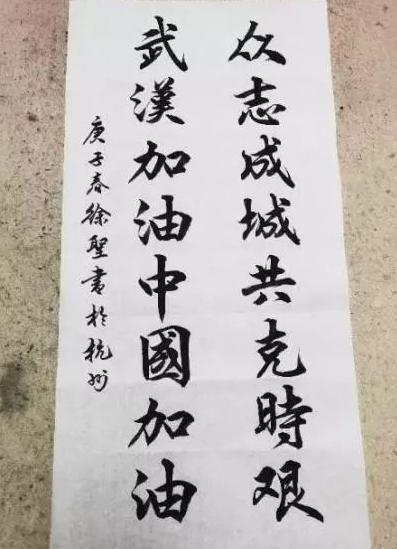 众志成城共克時艰
武漢加油中國加油
庚子春徐聖書於杭州